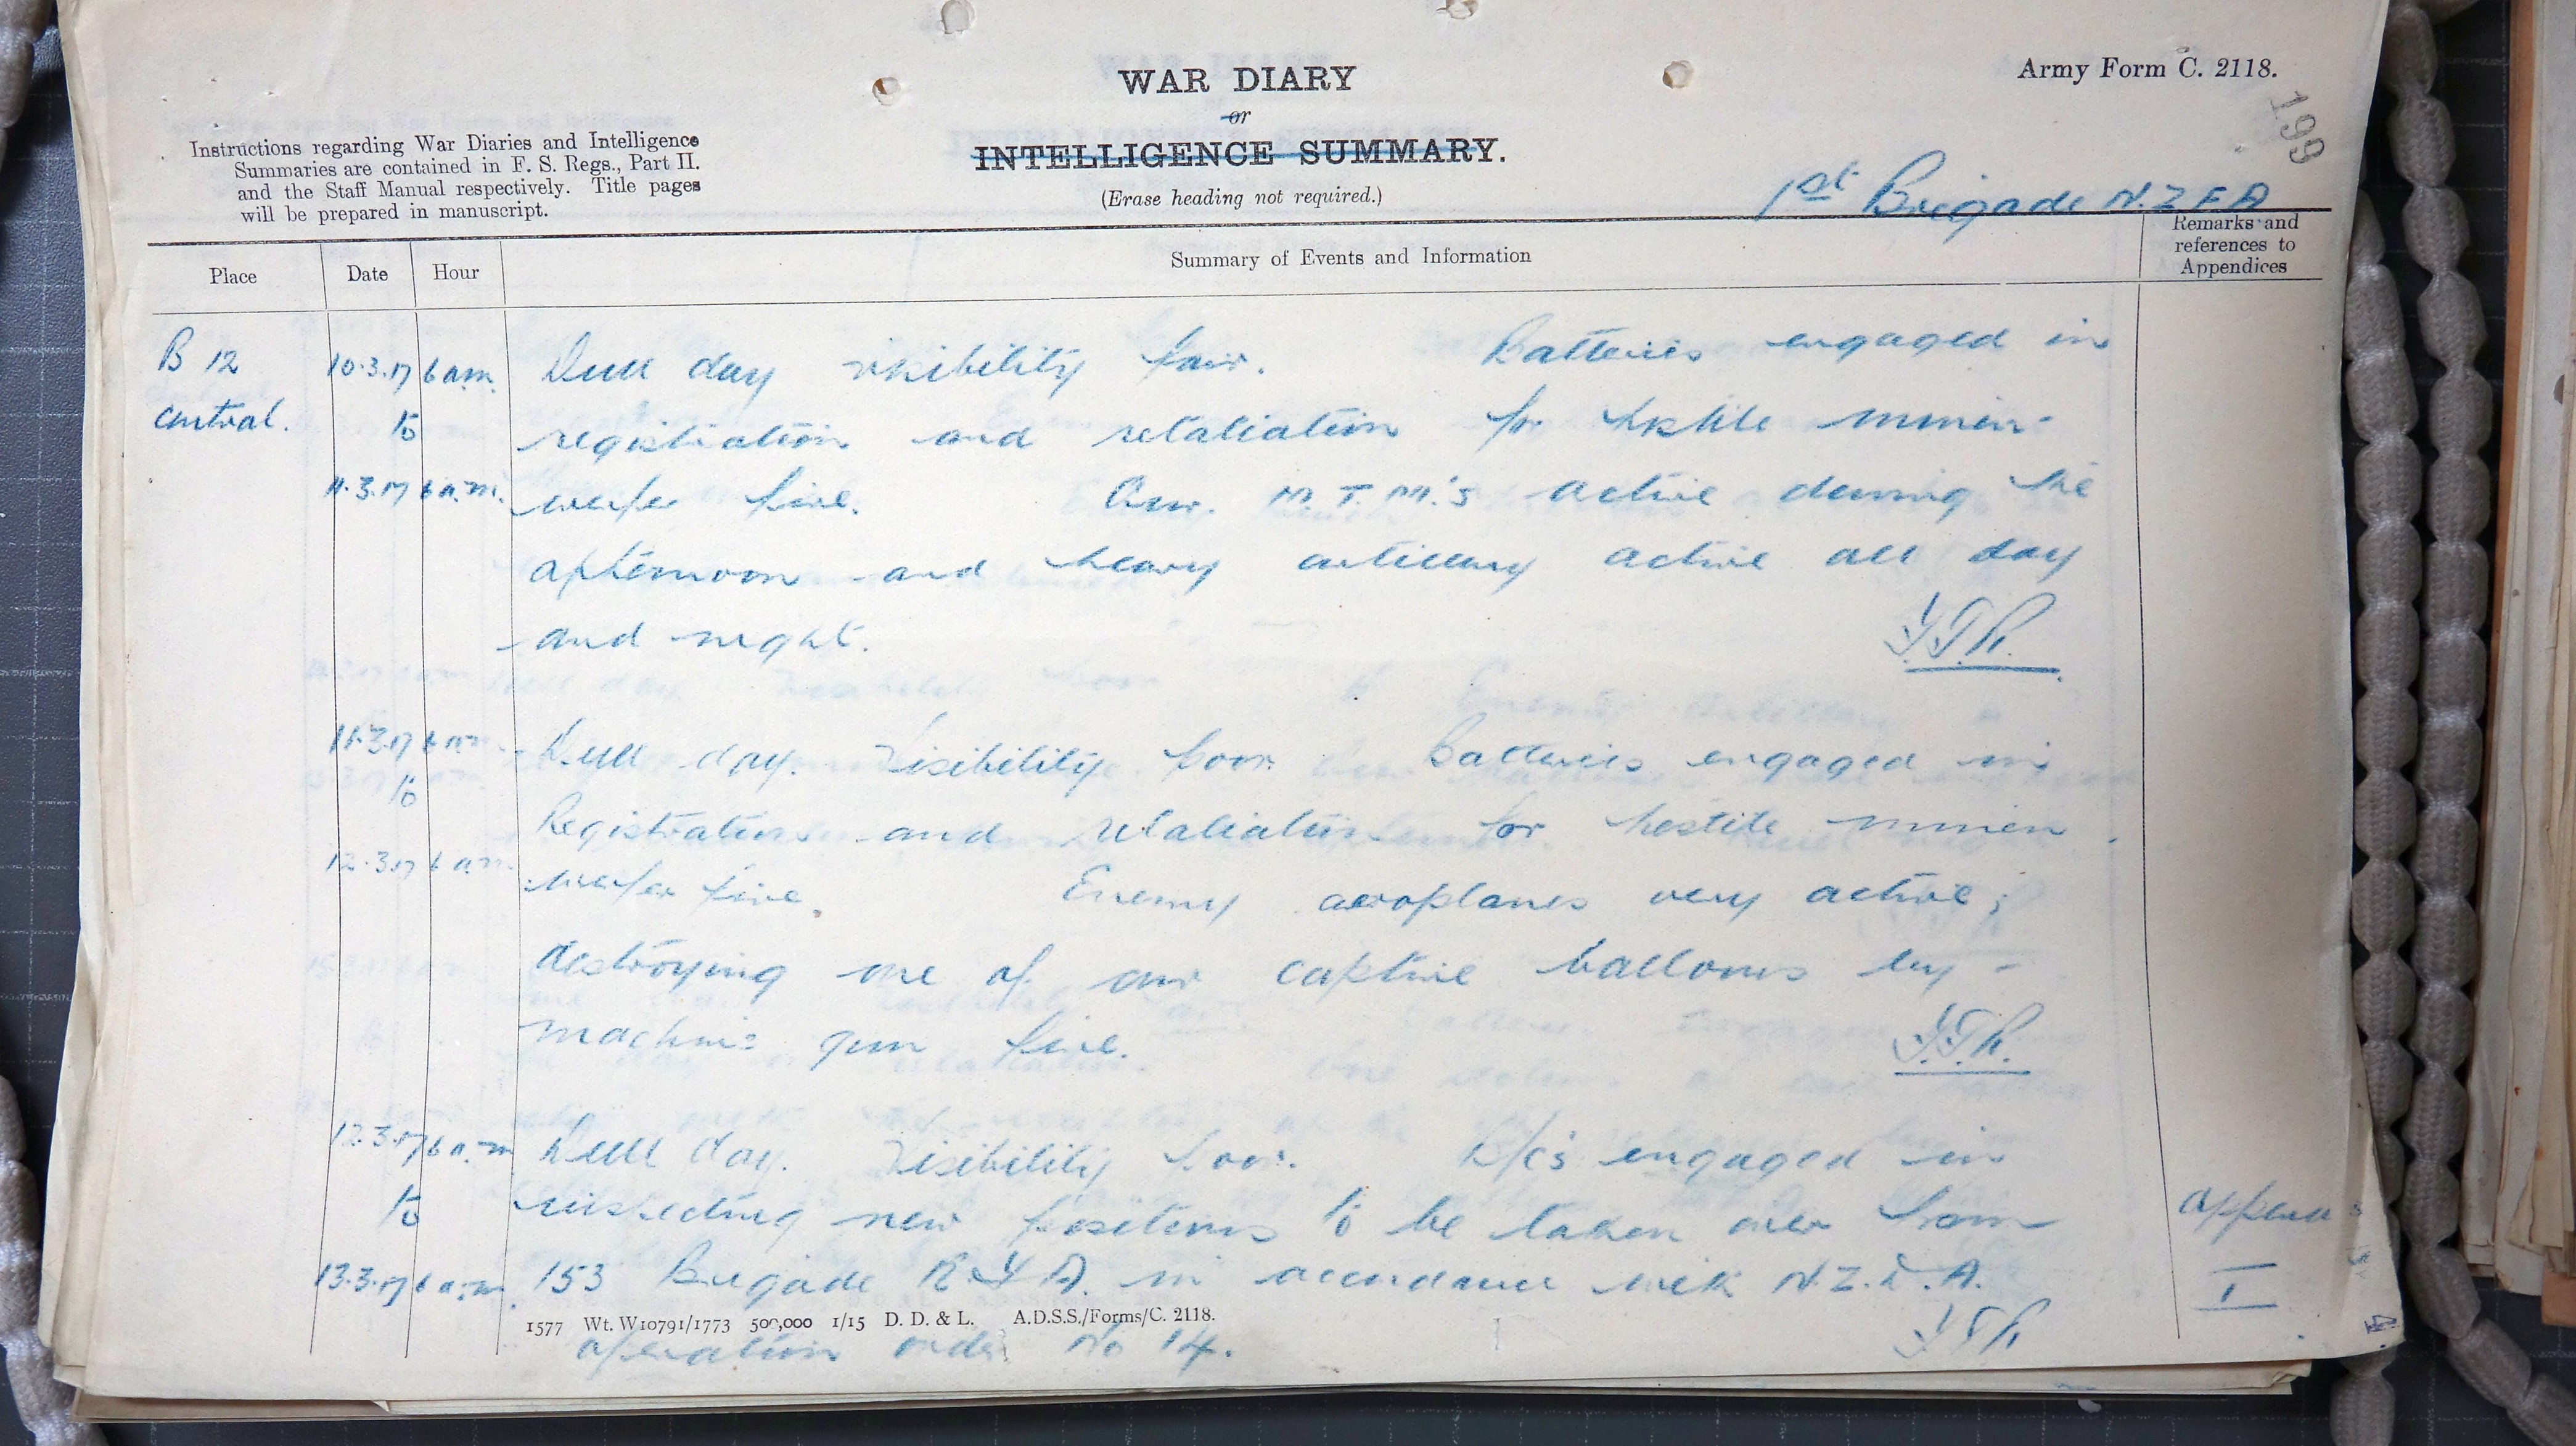 Army Form C. 2118.
199
WAR DIARY
or
INTELLIGENCE SUMMARY.
(Erase heading not required.)
Instructions regarding War Diaries and Intelligence
Summaries are contained in F. S. Regs., Part II.
and the Staff Manual respectively. Title pages
will be prepared in manuscript.
1st Brigade N.Z.F.A
Place Date Hour Summary of Events and Information Remarks and references to Appendices
B 12 10.3.17 6 a.m. Dull day visibility fair. Batteries engaged in
Central. to registration and retaliation for hostile minen-
11.3.17 6 a.m. werfer fire. Our M.T.M.'s active during the
afternoon and heavy artillery active all day
and night.
11.3.17 6 a.m. Dull day. Visibility poor. Batteries engaged in
to Registration and retaliation for hostile minen
12.3.17 6 a.m. werfer fire. Enemy aeroplanes very active;
destroying one of our captive balloons by -
machine gun fire.
12.3.17 6 a.m. Dull day. Visibility poor. B/C's engaged in
to inspecting new positions to be taken over from
13.3.17 6 a.m. 153 Brigade R.F.A. in accordance with N.Z.D.A. I
1577 Wt. W10791/1773 500,000 1/15 D. D. & L. A.D.S.S./Forms/C. 2118.
operation order No 14.